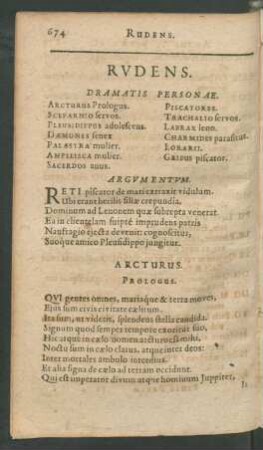 674 RUDENS.
RVDENS.
DRAMATIS PERSONAE.
ARCTURUS Prologus.
SCEPARNIO servos.
PLEUSIDIPPUS adolescens.
DÆMONES senex
PALÆSTRA mulier.
AMPELISCA mulier.
SACERDOS anus.
PISCATORES.
TRACHALIO servos.
LABRAX leno.
CHARMIDES parasitus.
LORARII.
GRIPUS piscator.
ARGVMENTVM.
RETI piscator de mari extraxit vidulum.
Ubi erant herilis filiæ crepundia,
Dominum ad Lenonem quæ subrepta venerat
Ea in clientelam suipte imprudens patris
Naufragio ejecta devenit: cognoscitur,
Suoque amico Pleusidippo jungitur.
ARCTURUS.
PROLOGUS.
QVI gentes omnes, mariaque & terra movet,
Ejus sum civis civitate cælitum.
Ita sum, ut videtis, splendens stella candida.
Signum quod semper tempore exoritur suo,
Hic atque in cælo nomen arcturo est mihi,
Noctu sum in cælo clarus, atque inter deos:
Inter mortales ambulo interdius.
Et alia signa de cælo ad terram accidunt.
Qui est imperator divum atque hominum Juppiter,